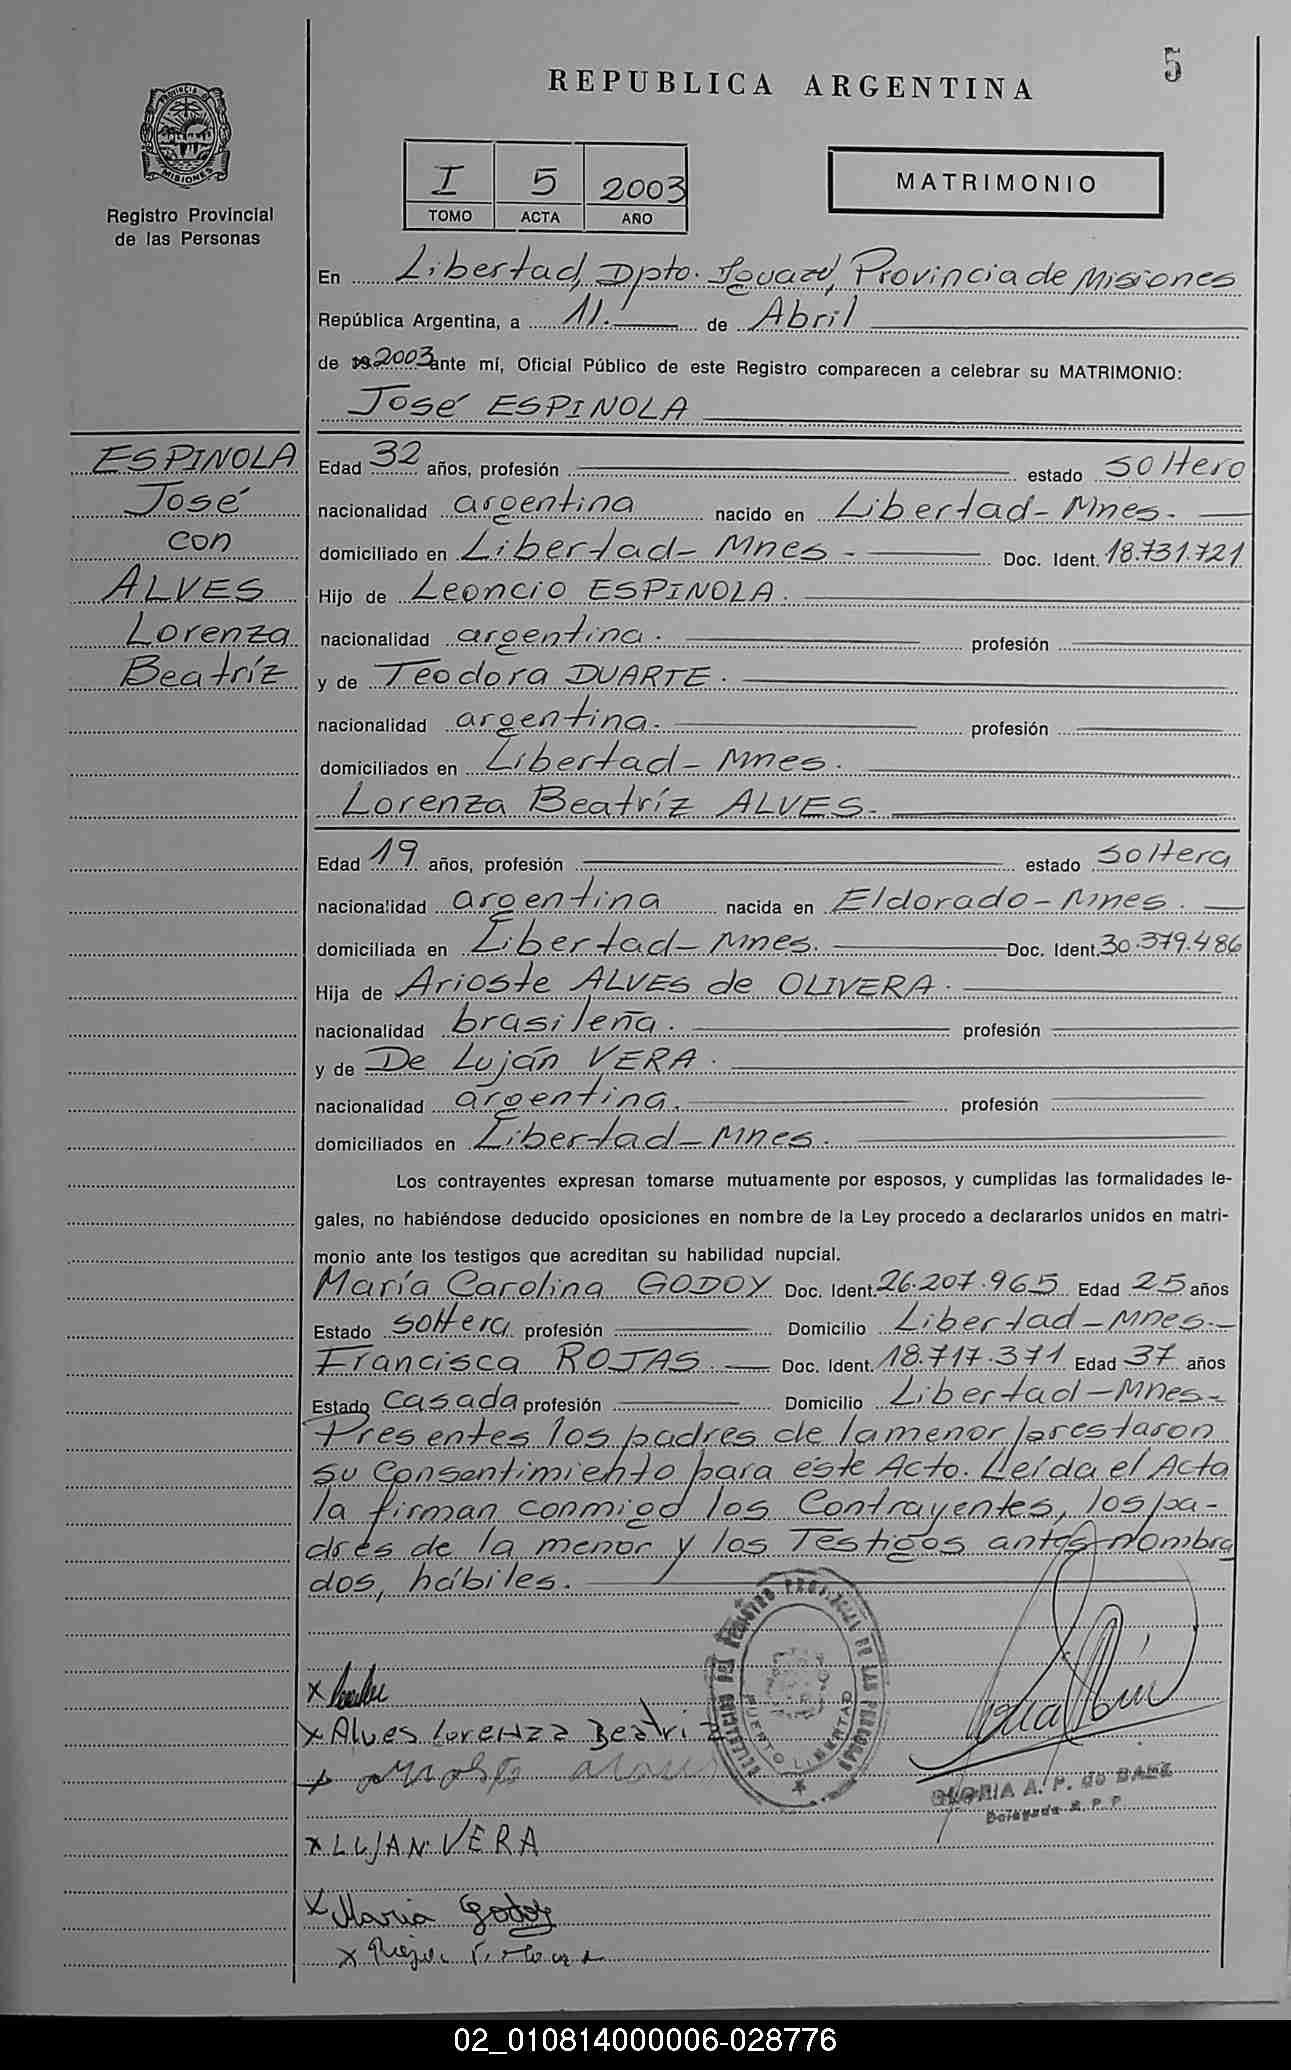 5
REPUBLICA ARGENTINA
PROVINCIA DE
MISIONES
Registro Provincial
de las Personas
I 5 2003
TOMO ACTA AÑO
MATRIMONIO
En Libertad, Dpto. Iguazú, Provincia de Misiones
República Argentina, a 11. de Abril
de 2003 ante mí, Oficial Público de este Registro comparecen a celebrar su MATRIMONIO:
José ESPINOLA
ESPINOLA
José
con
ALVES
Lorenza
Beatríz
Edad 32 años, profesión estado soltero
nacionalidad argentina nacido en Libertad-Mnes.
domiciliado en Libertad-Mnes. Doc. Ident. 18.731.721
Hijo de Leoncio ESPINOLA.
nacionalidad argentina. profesión
y de Teodora DUARTE.
nacionalidad argentina. profesión
domiciliados en Libertad-Mnes.
Lorenza Beatríz ALVES.
Edad 19 años, profesión estado soltera
nacionalidad argentina nacida en Eldorado-Mnes.
domiciliada en Libertad-Mnes. Doc. Ident. 30.379.486
Hija de Arioste ALVES de OLIVERA.
nacionalidad brasileña. profesión
y de De Luján VERA.
nacionalidad argentina. profesión
domiciliados en Libertad-Mnes.
Los contrayentes expresan tomarse mutuamente por esposos, y cumplidas las formalidades le-
gales, no habiéndose deducido oposiciones en nombre de la Ley procedo a declararlos unidos en matri-
monio ante los testigos que acreditan su habilidad nupcial.
María Carolina GODOY Doc. Ident. 26.207.965 Edad 25 años
Estado soltera profesión Domicilio Libertad-Mnes.
Francisca ROJAS Doc. Ident. 18.717.371 Edad 37 años
Estado casada profesión Domicilio Libertad-Mnes-
Presentes los padres de la menor prestaron
su Consentimiento para éste Acto. Leída el Acta
la firman conmigo los Contrayentes, los pa-
dres de la menor y los Testigos antes nombra
dos, hábiles.
x
x Alves Lorenza Beatriz
x
x LUJAN VERA
x Maria Godoy
x
REGISTRO PROVINCIAL DE LAS PERSONAS
PUERTO LIBERTAD
GLORIA A. P. de BAEZ
Delegada R.P.P.
02_010814000006-028776